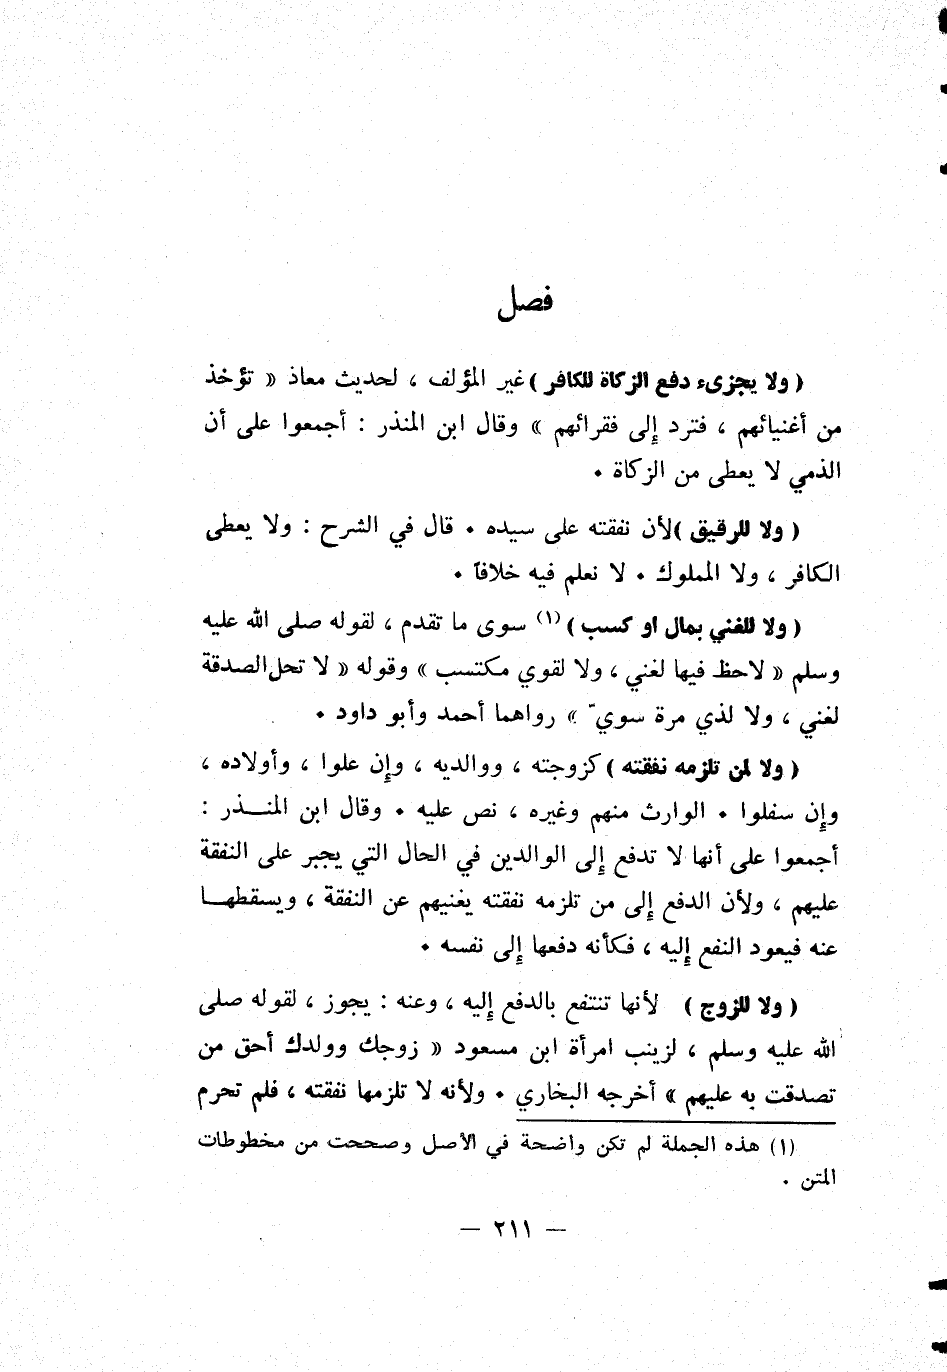 فصل
( ولا يجزىء دفع الزكاة للكافر ) غير المؤلف ، لحديث معاذ « تؤخذ
من أغنيائهم ، فترد إلى فقرائهم » وقال ابن المنذر : أجمعوا على أن
الذمي لا يعطى من الزكاة .
( ولا للرقيق ) لأن نفقته على سيده . قال في الشرح : ولا يعطى
الكافر ، ولا المملوك . لا نعلم فيه خلافاً .
( ولا للغني بمال او كسب ) (١) سوى ما تقدم ، لقوله صلى الله عليه
وسلم « لاحظ فيها لغني ، ولا لقوي مكتسب » وقوله « لا تحل الصدقة
لغني ، ولا لذي مرة سويّ » رواهما أحمد وأبو داود .
( ولا لمن تلزمه نفقته ) كزوجته ، ووالديه ، وإن علوا ، وأولاده ،
وإن سفلوا . الوارث منهم وغيره ، نص عليه . وقال ابن المنـــذر :
أجمعوا على أنها لا تدفع إلى الوالدين في الحال التي يجبر على النفقة
عليهم ، ولأن الدفع إلى من تلزمه نفقته يغنيهم عن النفقة ، ويسقطهـــا
عنه فيعود النفع إليه ، فكأنه دفعها إلى نفسه .
( ولا للزوج ) لأنها تنتفع بالدفع إليه ، وعنه : يجوز ، لقوله صلى
الله عليه وسلم ، لزينب امرأة ابن مسعود « زوجك وولدك أحق من
تصدقت به عليهم » أخرجه البخاري . ولأنه لا تلزمها نفقته ، فلم تحرم
(١) هذه الجملة لم تكن واضحة في الأصل وصححت من مخطوطات
المتن .
— ٢١١ —